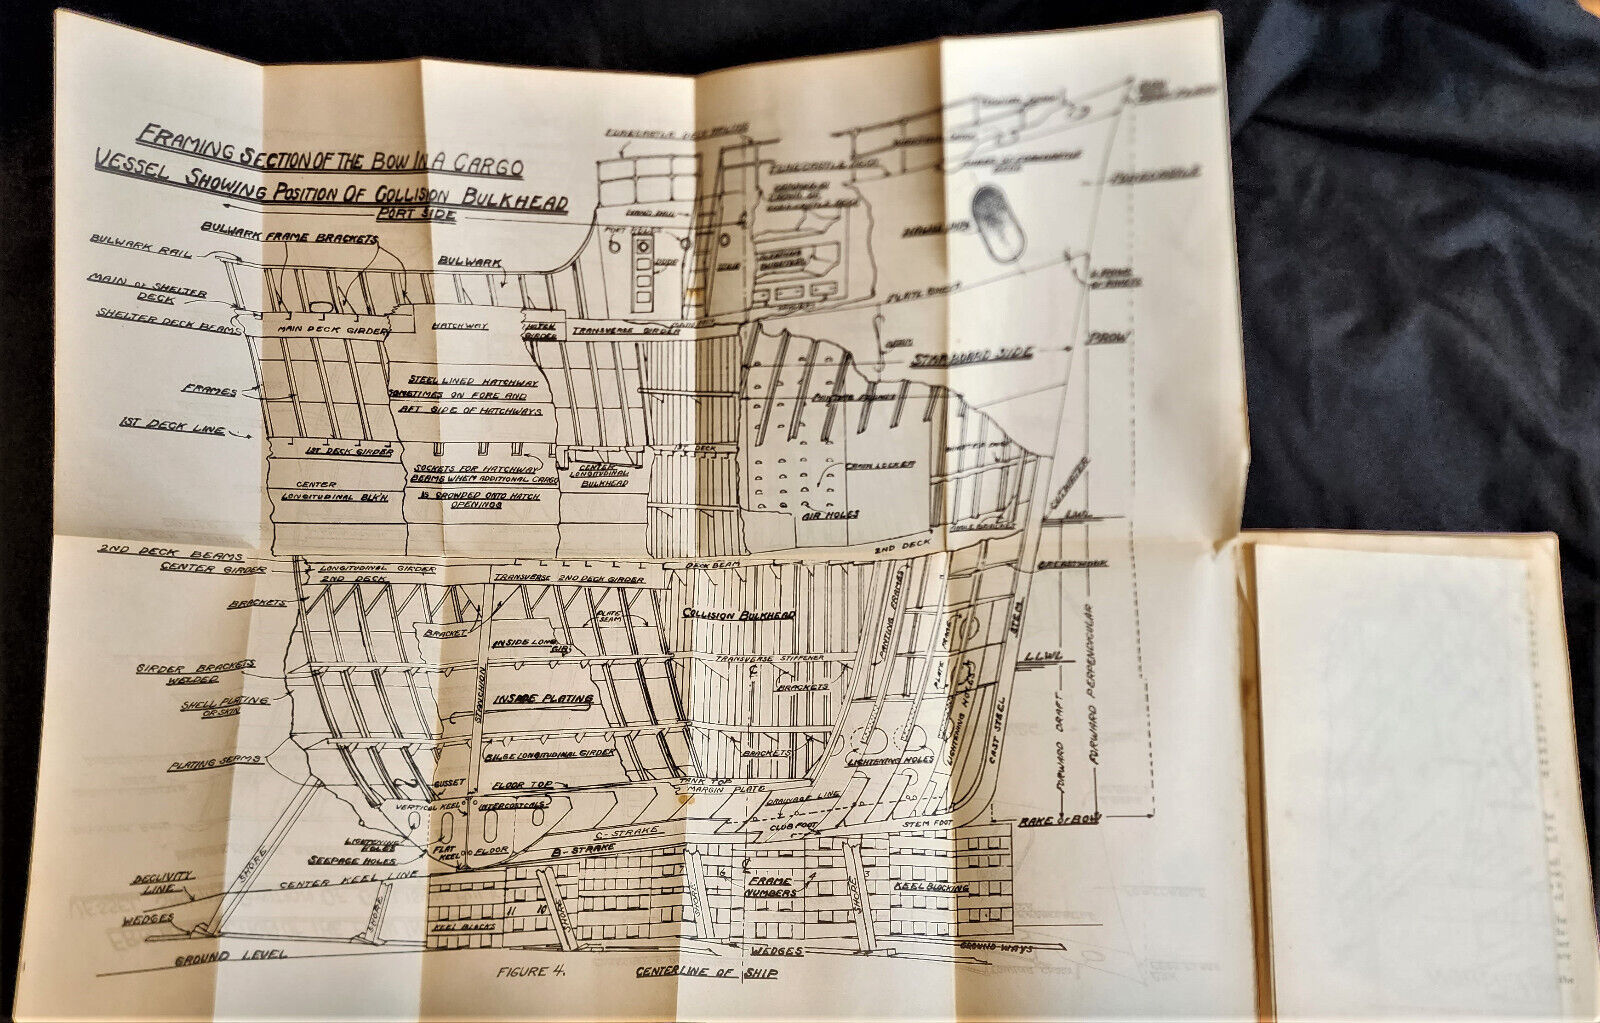 FRAMING SECTION OF THE BOW IN A CARGO
VESSEL SHOWING POSITION OF COLLISION BULKHEAD
PORT SIDE
BULWARK FRAME BRACKETS
BULWARK RAIL
BULWARK
MAIN OR SHELTER
DECK
SHELTER DECK BEAMS
MAIN DECK GIRDER
HATCHWAY
HATCH
GIRDER
TRANSVERSE GIRDER
HAND RAIL
PORT HOLES
FORECASTLE DECK
FORECASTLE
STARBOARD SIDE
PROW
FRAMES
STEEL LINED HATCHWAY
SOMETIMES ON FORE AND
AFT SIDE OF HATCHWAYS
PANTING FRAMES
1ST DECK LINE
1ST DECK GIRDER
1ST DECK
SOCKETS FOR HATCHWAY
BEAMS WHEN ADDITIONAL CARGO
IS CROWDED ONTO HATCH
OPENINGS
CENTER
LONGITUDINAL
BULKHEAD
CENTER
LONGITUDINAL BLK'H.
CHAIN LOCKER
AIR HOLES
CUTWATER
LWL
2ND DECK BEAMS
CENTER GIRDER
LONGITUDINAL GIRDER
2ND DECK
TRANSVERSE 2ND DECK GIRDER
DECK BEAM
2ND DECK
BREASTHOOK
BRACKETS
BRACKET
PLATE
SEAM
COLLISION BULKHEAD
PANTING FRAMES
STEM
INSIDE LONG.
GIR.
TRANSVERSE STIFFENER
BRACKETS
LLWL
GIRDER BRACKETS
WELDED
STANCHION
INSIDE PLATING
SHELL PLATING
OR SKIN
CAST STEEL
LIGHTENING HOLES
FORWARD DRAFT
FORWARD PERPENDICULAR
PLATING SEAMS
BILGE LONGITUDINAL GIRDER
BRACKETS
LIGHTENING HOLES
GUSSET
FLOOR TOP
TANK TOP
MARGIN PLATE
DRAINAGE LINE
VERTICAL KEEL
INTERCOSTALS
C-STRAKE
CLUB FOOT
STEM FOOT
RAKE OF BOW
LIGHTENING
HOLES
SEEPAGE HOLES
FLAT
KEEL
FLOOR
B-STRAKE
SHORE
DECLIVITY
LINE
CENTER KEEL LINE
WEDGES
SHORE
11
10
KEEL BLOCKS
SHORE
SHORE
FRAME
NUMBERS
4
SHORE
3
KEEL BLOCKING
GROUND LEVEL
WEDGES
GROUND WAYS
FIGURE 4.
CENTERLINE OF SHIP